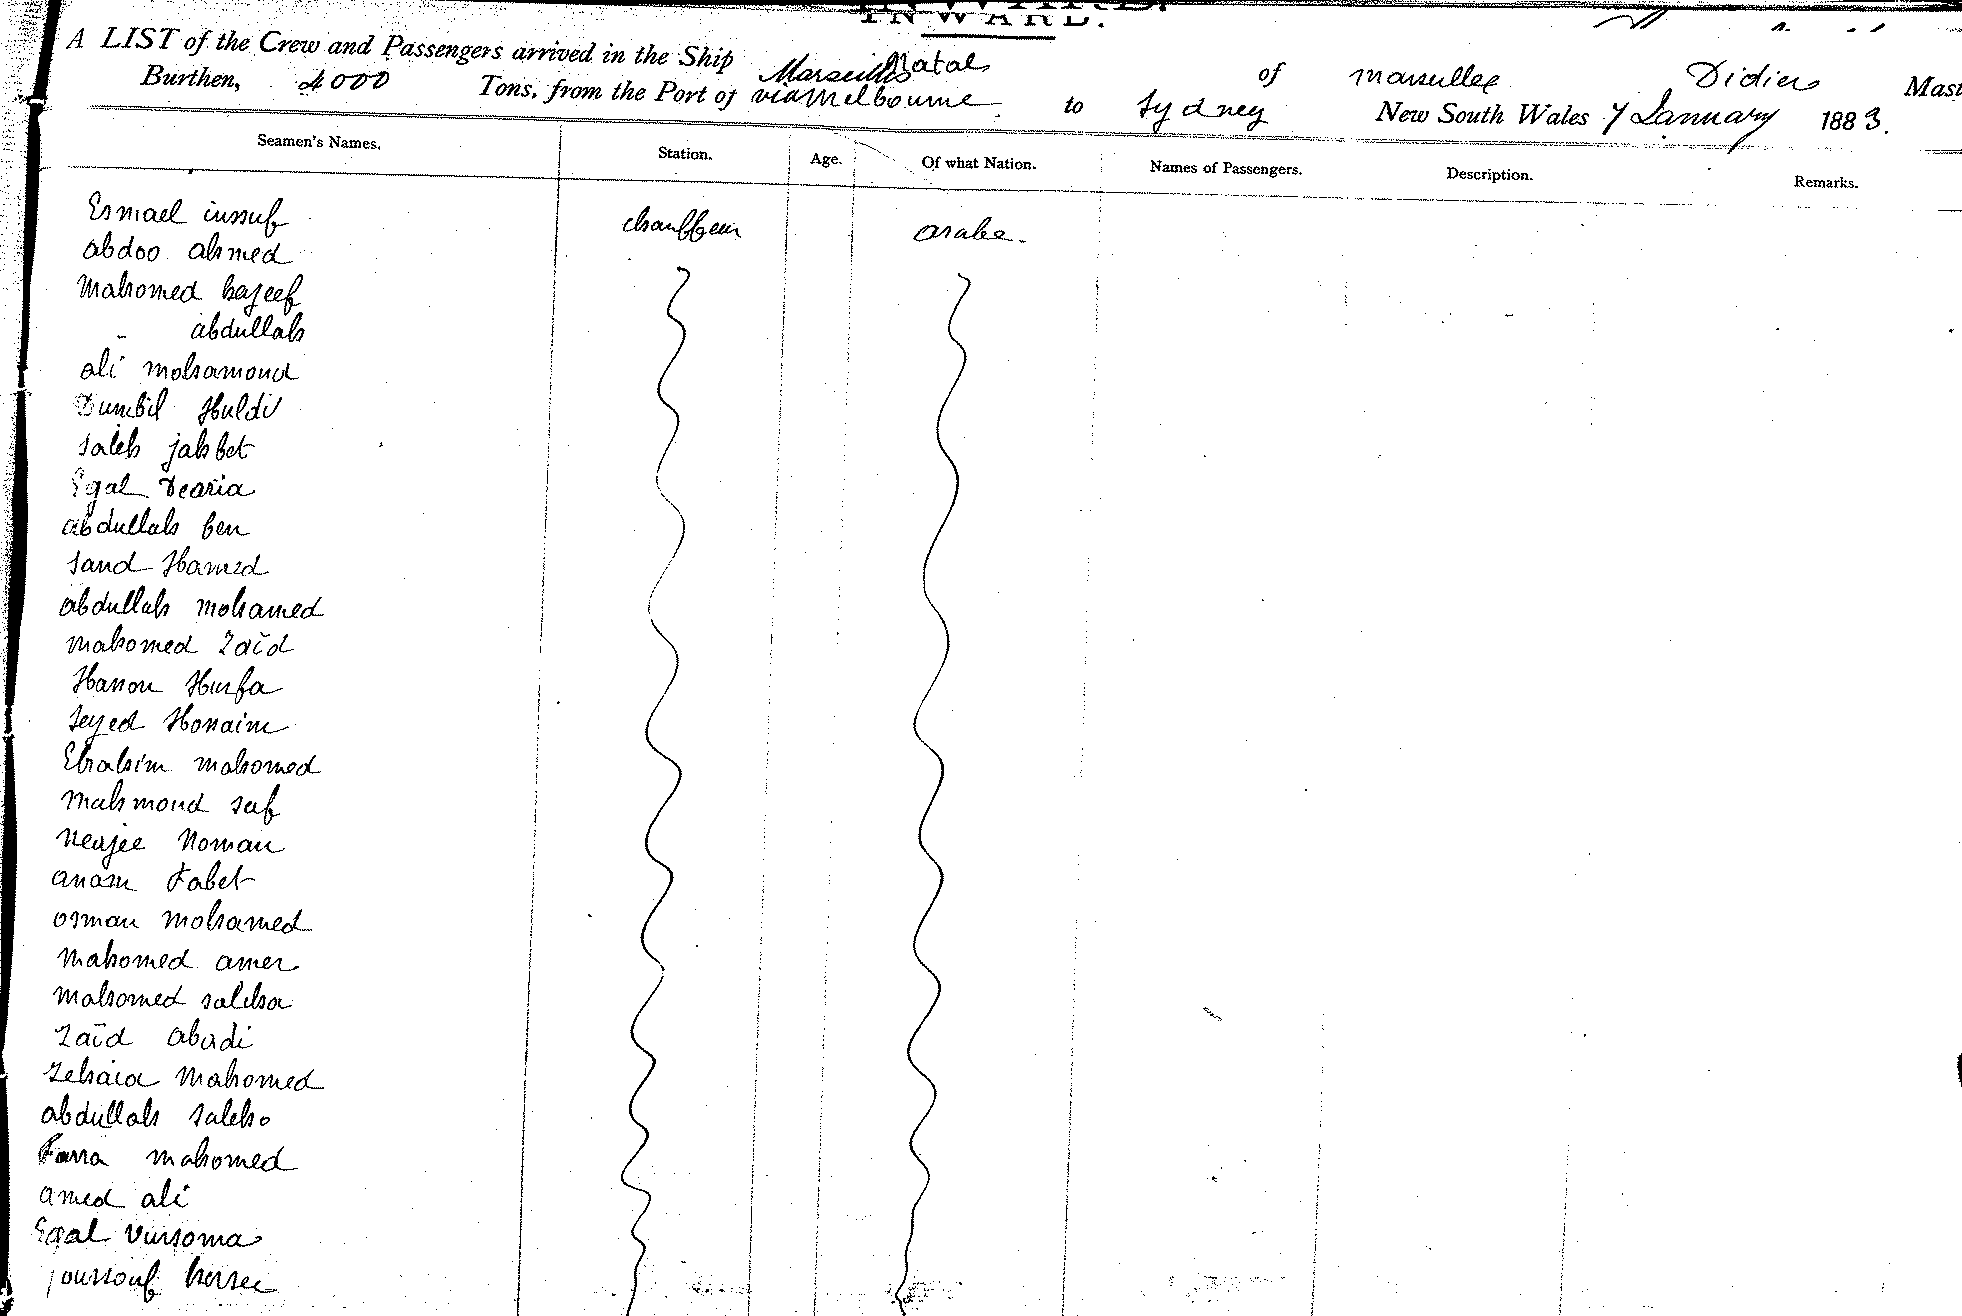 INWARD.
A LIST of the Crew and Passengers arrived in the Ship Natal of Marseilles Didier
Burthen, 4000 Tons, from the Port of Marseilles via Melbourne to Sydney New South Wales 7 January 1883.
Seamen's Names. Station. Age. Of what Nation. Names of Passengers. Description. Remarks.
Esmael iussuf chauffeur arabe.
abdoo ahmed
Mahomed hajeef
" abdullah
ali mohamoud
Dumbil Huldi
saleh jahbet
Egal Dearia
abdullah ben
saud Hamed
abdullah mohamed
mahomed Zaïd
Hassou Hurfa
seyed Hossaim
Ebrahim mahomed
mahmoud saf
Neajee Noman
anam tabet
osman mohamed
Mahomed amer
mahomed saleha
Zaïd abadi
Zehaia Mahomed
abdullah saleho
Farra mahomed
amed ali
Egal Vursoma
youssouf hersee